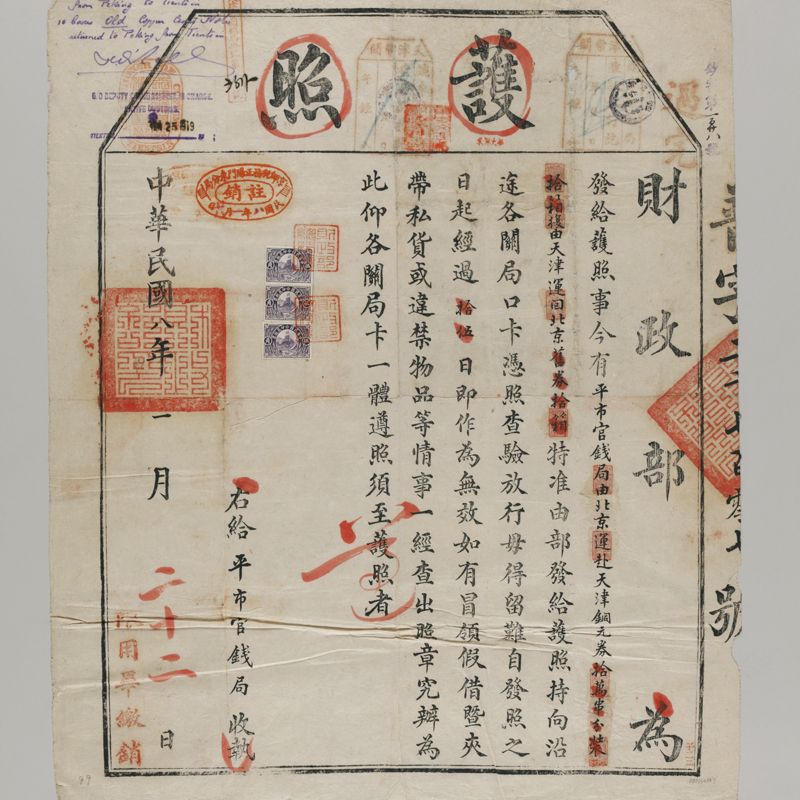 from Peking to Tientsin
10 boxes Old Copper Cents Notes
returned to Peking from Tientsin
護照
財政部為
發給護照事今有平市官錢局由北京運赴天津銅元券拾萬串分裝
拾箱復由天津運回北京舊券拾箱特准由部發給護照持向沿
途各關局口卡憑照查驗放行毋得留難自發照之
日起經過拾伍日即作為無效如有冒領假借暨夾
帶私貨或違禁物品等情事一經查出照章究辦為
此仰各關局卡一體遵照須至護照者
右給平市官錢局收執
中華民國八年一月二十二日
註銷
用畢繳銷
遵